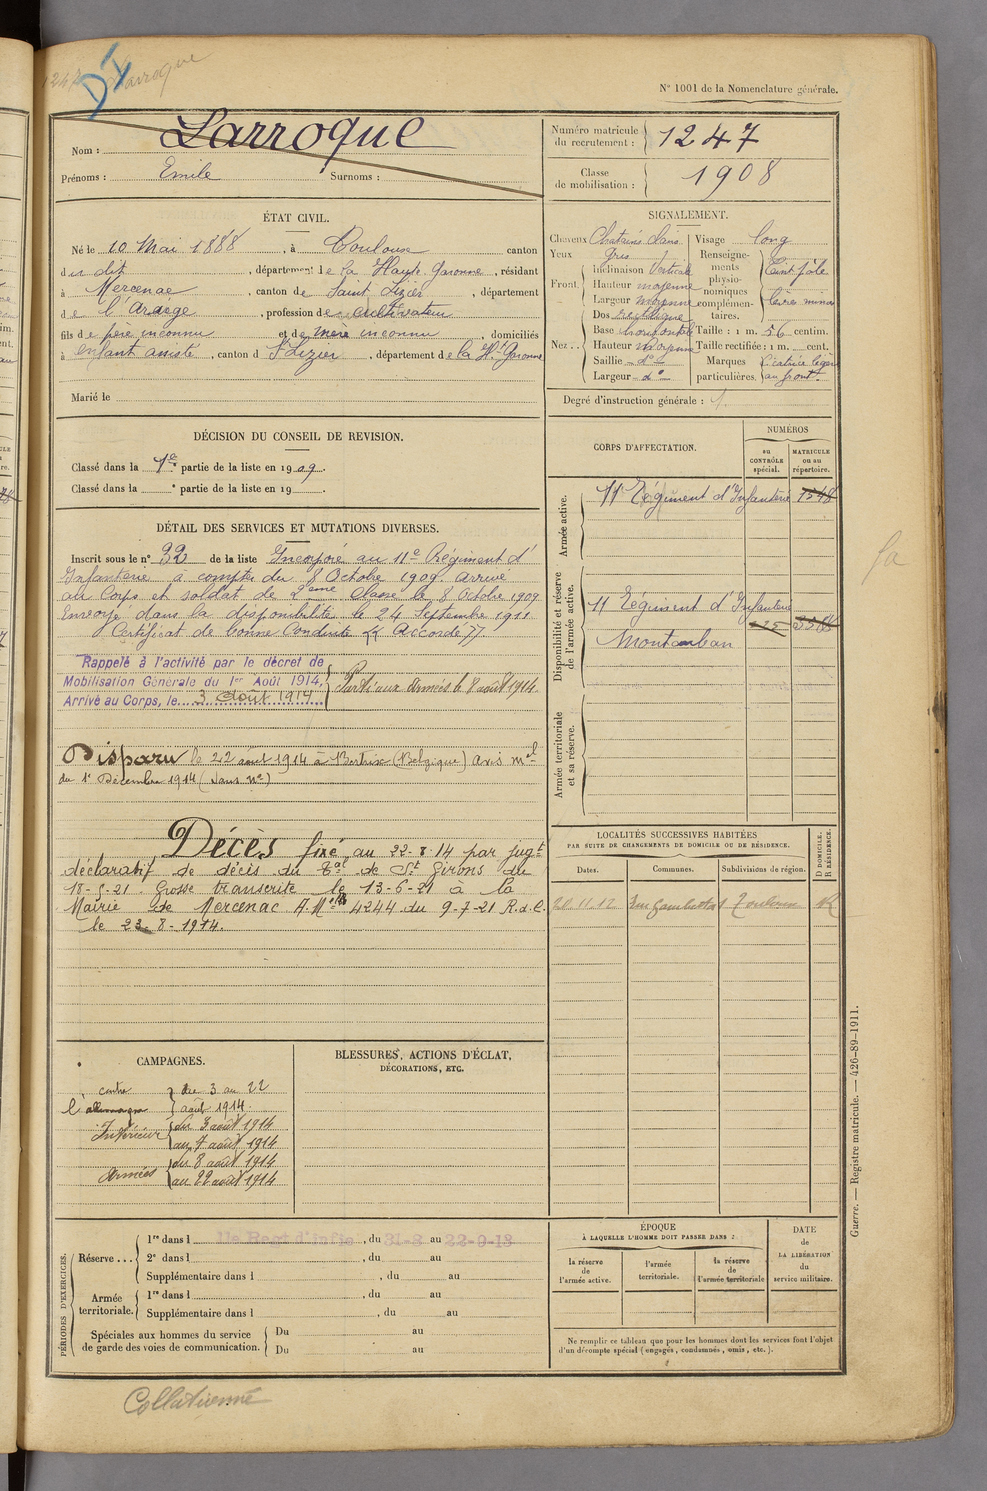 Larroque
DY
N° 1001 de la Nomenclature générale.
Nom : Larroque
Prénoms : Emile Surnoms :
Numéro matricule du recrutement : 1247
Classe de mobilisation : 1908
ÉTAT CIVIL.
Né le 10 Mai 1888, à Toulouse canton
du dit, département de la Haute Garonne, résidant
à Mercenac, canton de Saint Lizier, département
de l'Ariège, profession de cultivateur
fils de père inconnu et de mère inconnu, domiciliés
à enfant assisté, canton d St Lizier, département de la Hte Garonne
Marié le
SIGNALEMENT.
Cheveux Chatains clairs
Yeux Gris
Front. Inclinaison Verticale
Hauteur moyenne
Largeur moyenne
Nez. Dos rectiligne
Base horizontale
Hauteur moyenne
Saillie do
Largeur do
Visage long
Renseignements physionomiques complémentaires. Teint pâle
lèvres minces
Taille : 1 m. 56 centim.
Taille rectifiée : 1 m. cent.
Marques particulières. Cicatrice légère
au front.
Degré d'instruction générale :
DÉCISION DU CONSEIL DE REVISION.
Classé dans la 1e partie de la liste en 1909.
Classé dans la e partie de la liste en 19
DÉTAIL DES SERVICES ET MUTATIONS DIVERSES.
Inscrit sous le n° 32 de la liste Incorporé au 11e Régiment d'
Infanterie à compter du 8 Octobre 1909. Arrivé
au Corps et soldat de 2eme classe le 8 Octobre 1909
Envoyé dans la disponibilité le 24 Septembre 1911
Certificat de bonne Conduite "Accordé"
Rappelé à l'activité par le décret de
Mobilisation Générale du 1er Août 1914,
Arrivé au Corps, le 3 Août 1914
Parti aux Armées le 8 août 1914.
Disparu le 22 août 1914 à Bertrix (Belgique) avis mel
du 1er Décembre 1914 (sans no)
Décès fixé au 22-8-14 par jugt
déclaratif de décès du Tal de St Girons du
18-5-21. Grosse transcrite le 13-6-21 à la
Mairie de Mercenac A.M. 4244 du 9-7-21 R.d.C.
le 23-8-1914.
CORPS D'AFFECTATION.
NUMÉROS
au CONTRÔLE spécial.
MATRICULE ou au répertoire.
Armée active.
11 Régiment d'Infanterie 1548
Disponibilité et réserve de l'armée active.
11 Régiment d'Infanterie
Montauban
Armée territoriale et sa réserve.
LOCALITÉS SUCCESSIVES HABITÉES
PAR SUITE DE CHANGEMENTS DE DOMICILE OU DE RÉSIDENCE.
Dates. Communes. Subdivisions de région.
D DOMICILE. R RÉSIDENCE.
Toulouse R
CAMPAGNES.
contre l'allemagne du 3 au 22
août 1914.
Intérieur du 3 août 1914
au 7 août 1914
Armées du 8 août 1914
au 22 août 1914
BLESSURES, ACTIONS D'ÉCLAT,
DÉCORATIONS, ETC.
PÉRIODES D'EXERCICES.
Réserve...
1re dans l 11e Regt d'infie, du 31-8 au 22-9-13
2e dans l , du au
Supplémentaire dans l , du au
Armée territoriale.
1re dans l , du au
Supplémentaire dans l , du au
Spéciales aux hommes du service
de garde des voies de communication.
Du au
Du au
ÉPOQUE
À LAQUELLE L'HOMME DOIT PASSER DANS :
la réserve de l'armée active.
l'armée territoriale.
la réserve de l'armée territoriale
DATE de LA LIBÉRATION du service militaire.
Ne remplir ce tableau que pour les hommes dont les services font l'objet
d'un décompte spécial (engagés, condamnés, omis, etc.).
Guerre. — Registre matricule. — 426-89-1911.
Collationné